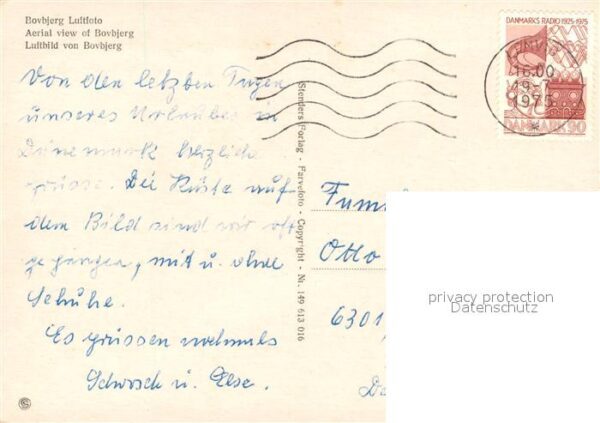 Bovbjerg Luftfoto
Aerial view of Bovbjerg
Luftbild von Bovbjerg
DANMARKS RADIO 1925-1975
16.00
1975
DANMARK 90
Von den letzten Tagen
unseres Urlaubes in
Dänemark herzliche
Grüsse. Die Küste auf
dem Bild sind wir oft
gegangen, mit u. ohne
Schuhe.
Es grüssen nochmals
Schorsch u. Else.
Stenders Forlag - Farvefoto - Copyright - Nr. 149 613 016
Otto
6301
privacy protection
Datenschutz